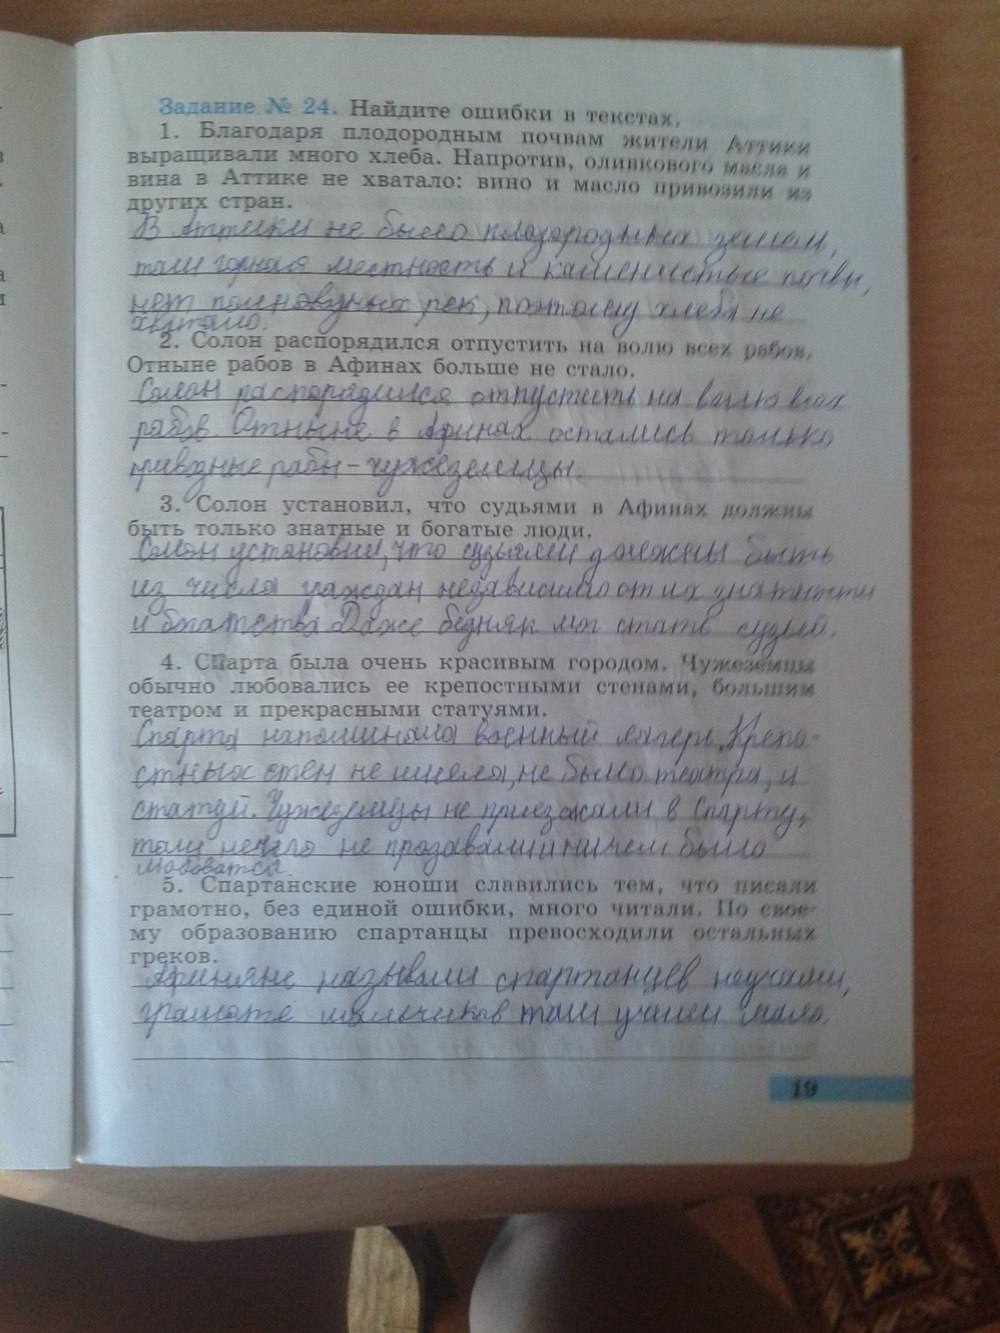 Задание № 24. Найдите ошибки в текстах.
1. Благодаря плодородным почвам жители Аттики
выращивали много хлеба. Напротив, оливкового масла и
вина в Аттике не хватало: вино и масло привозили из
других стран.
В Аттики не было плодородных земель,
там горная местность и каменистые почвы,
нет полноводных рек, поэтому хлеба не
хватало.
2. Солон распорядился отпустить на волю всех рабов.
Отныне рабов в Афинах больше не стало.
Солон распорядился отпустить на волю всех
рабов. Отныне в Афинах остались только
привозные рабы - чужеземцы.
3. Солон установил, что судьями в Афинах должны
быть только знатные и богатые люди.
Солон установил, что судьями должны быть
из числа граждан независимо от их знатности
и богатства. Даже бедняк мог стать судьей.
4. Спарта была очень красивым городом. Чужеземцы
обычно любовались ее крепостными стенами, большим
театром и прекрасными статуями.
Спарта напоминала военный лагерь. Крепо-
стных стен не имела, не было театра, и
статуй. Чужеземцы не приезжали в Спарту,
там ничего не продавали и ничем было
любоватся.
5. Спартанские юноши славились тем, что писали
грамотно, без единой ошибки, много читали. По свое-
му образованию спартанцы превосходили остальных
греков.
Афиняне называли спартанцев неучами,
грамоте мальчиков там учили мало.
19